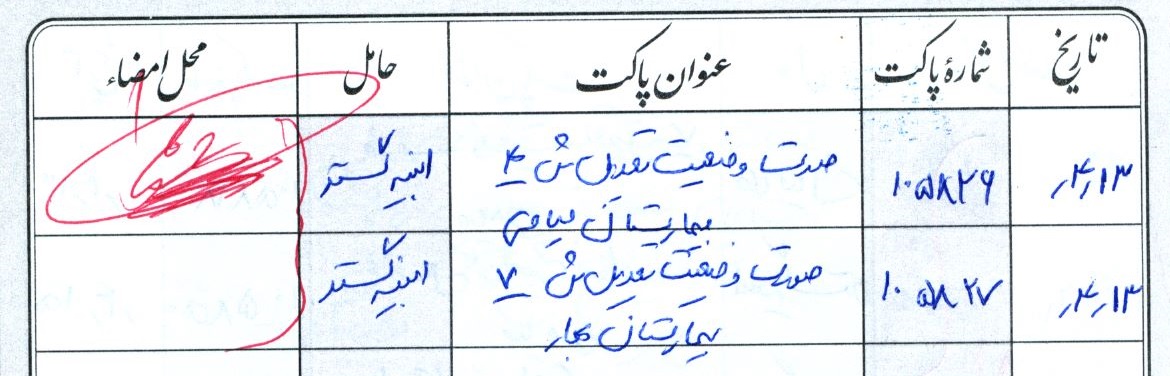 تاریخ شمارهٔ پاکت عنوان پاکت حامل محل امضاء
۴٫۱۳ ۱۰۵۸۲۶ صورت وضعیت تعدیل ش ۴ ابنیه گستر
بیمارستان
۴٫۱۳ ۱۰۵۸۲۷ صورت وضعیت تعدیل ش ۷ ابنیه گستر
بیمارستان